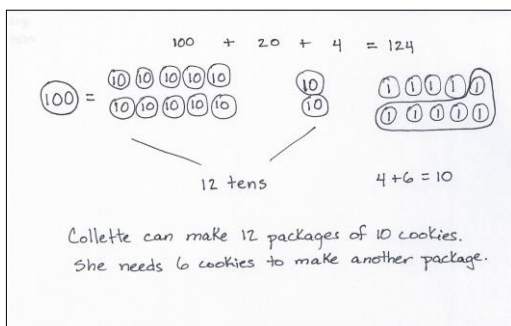 100 + 20 + 4 = 124
100 = 10 10 10 10 10 10 1 1 1 1 1
10 10 10 10 10 10 1 1 1 1 1
12 tens 4 + 6 = 10
Collette can make 12 packages of 10 cookies.
She needs 6 cookies to make another package.